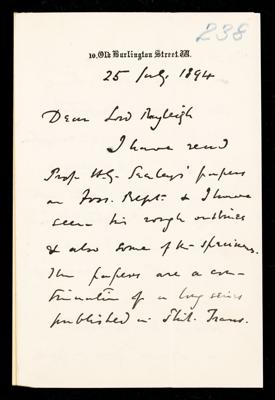 238
10, Old Burlington Street. W.
25 July 1894
Dear Lord Rayleigh
I have read
Prof. H.G. Seeley's papers
on Foss. Rept. & I have
seen his rough outlines
& also some of the specimens.
The papers are a con-
tinuation of a long series
published in Phil. Trans.